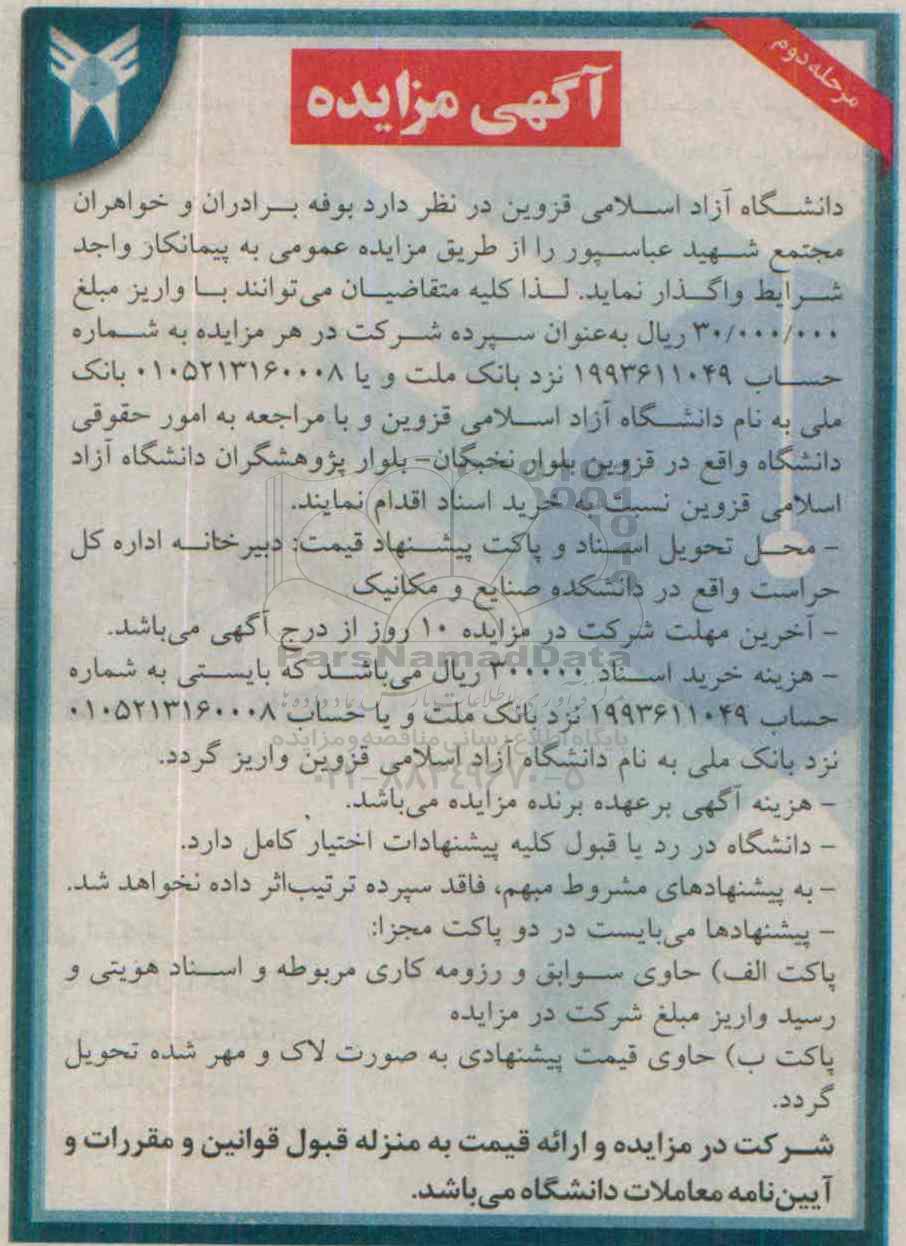 مرحله دوم
آگهی مزایده
دانشگاه آزاد اسلامی قزوین در نظر دارد بوفه برادران و خواهران
مجتمع شهید عباسپور را از طریق مزایده عمومی به پیمانکار واجد
شرایط واگذار نماید. لذا کلیه متقاضیان می‌توانند با واریز مبلغ
۳۰/۰۰۰/۰۰۰ ریال به‌عنوان سپرده شرکت در هر مزایده به شماره
حساب ۱۹۹۳۶۱۱۰۴۹ نزد بانک ملت و یا ۰۱۰۵۲۱۳۱۶۰۰۰۸ بانک
ملی به نام دانشگاه آزاد اسلامی قزوین و با مراجعه به امور حقوقی
دانشگاه واقع در قزوین بلوار نخبگان- بلوار پژوهشگران دانشگاه آزاد
اسلامی قزوین نسبت به خرید اسناد اقدام نمایند.
- محل تحویل اسناد و پاکت پیشنهاد قیمت: دبیرخانه اداره کل
حراست واقع در دانشکده صنایع و مکانیک
- آخرین مهلت شرکت در مزایده ۱۰ روز از درج آگهی می‌باشد.
ParsNamadData
- هزینه خرید اسناد ۳۰۰۰۰۰ ریال می‌باشد که بایستی به شماره
حساب ۱۹۹۳۶۱۱۰۴۹ نزد بانک ملت و یا حساب ۰۱۰۵۲۱۳۱۶۰۰۰۸
پایگاه اطلاع رسانی مناقصه و مزایده
نزد بانک ملی به نام دانشگاه آزاد اسلامی قزوین واریز گردد.
۰۲۱-۸۸۳۴۹۶۷۰-۵
- هزینه آگهی برعهده برنده مزایده می‌باشد.
- دانشگاه در رد یا قبول کلیه پیشنهادات اختیار کامل دارد.
- به پیشنهادهای مشروط مبهم، فاقد سپرده ترتیب‌اثر داده نخواهد شد.
- پیشنهادها می‌بایست در دو پاکت مجزا:
پاکت الف) حاوی سوابق و رزومه کاری مربوطه و اسناد هویتی و
رسید واریز مبلغ شرکت در مزایده
پاکت ب) حاوی قیمت پیشنهادی به صورت لاک و مهر شده تحویل
گردد.
شرکت در مزایده و ارائه قیمت به منزله قبول قوانین و مقررات و
آیین‌نامه معاملات دانشگاه می‌باشد.